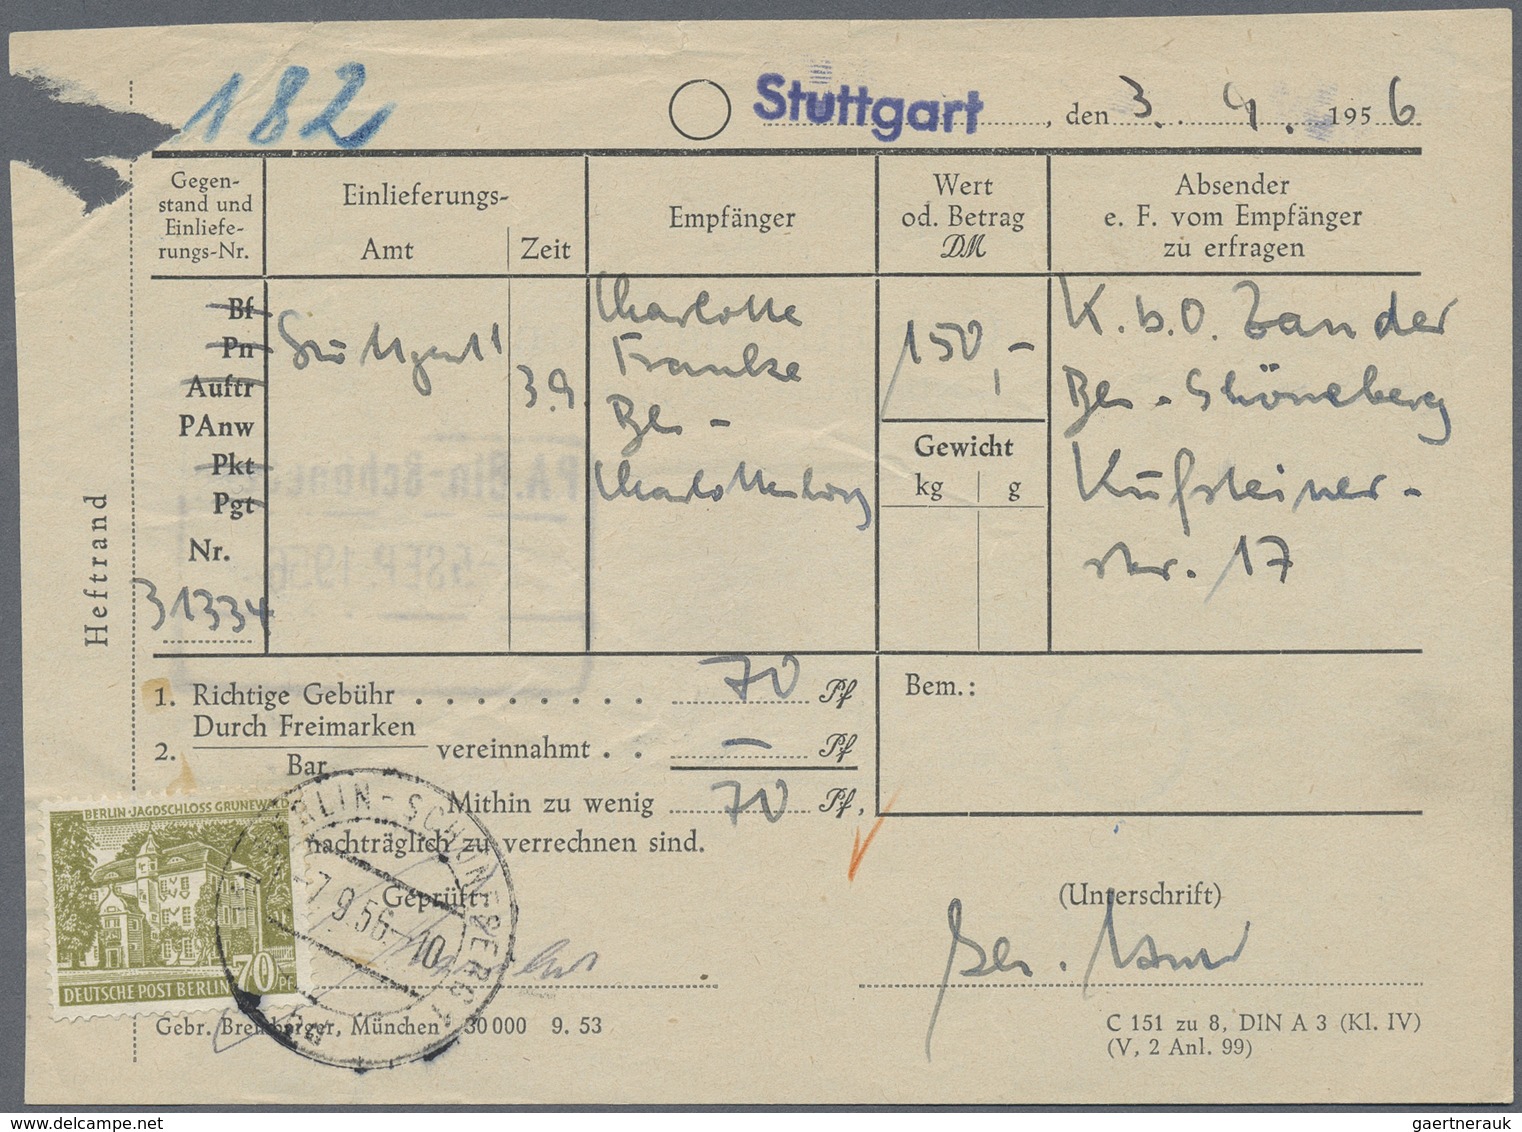 182
Stuttgart, den 3. 9. 1956
Gegen-
stand und
Einliefe-
rungs-Nr.
Einlieferungs-
Amt
Zeit
Empfänger
Wert
od. Betrag
DM
Absender
e. F. vom Empfänger
zu erfragen
Bf
Pn
Auftr
PAnw
Pkt
Pgt
Nr.
31334
Stuttgart 1
3.9.
Charlotte
Franke
Bln -
Charlottenburg
150,-
Gewicht
kg
g
K.b.O. Zander
Bln - Schöneberg
Kufsteiner-
str. 17
P.A. Bln-Schöneb
-5 SEP. 1956
Heftrand
1. Richtige Gebühr . . . . . . . . 70 Pf
2. Durch Freimarken
Bar
vereinnahmt . . — Pf
Mithin zu wenig 70 Pf,
nachträglich zu verrechnen sind.
Bem.:
Geprüft:
(Unterschrift)
BERLIN-JAGDSCHLOSS GRUNEWALD
70 PF
DEUTSCHE POST BERLIN
BERLIN-SCHÖNEBERG 1
-7.9.56.-10
Gebr. Breitsberger, München 30000 9. 53
C 151 zu 8, DIN A 3 (Kl. IV)
(V, 2 Anl. 99)
gaertnerauk.com